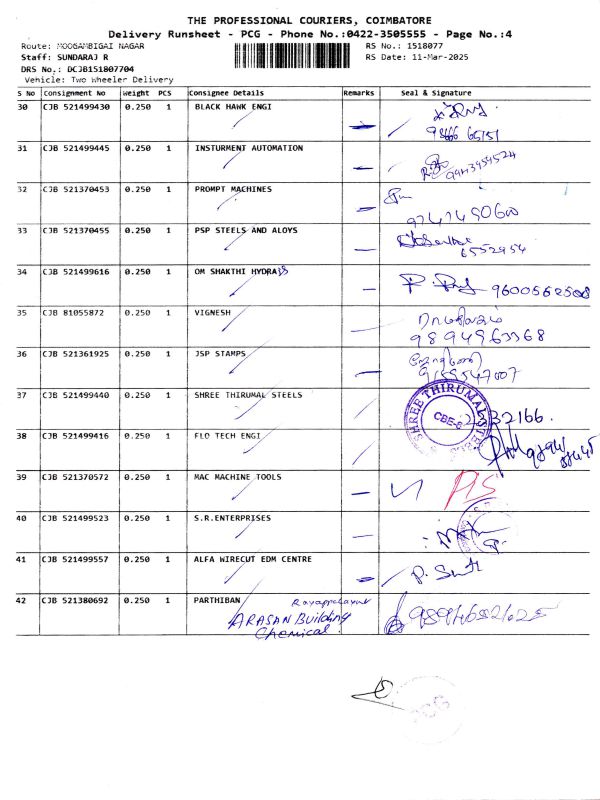 THE PROFESSIONAL COURIERS, COIMBATORE
Delivery Runsheet - PCG - Phone No.:0422-3505555 - Page No.:4
Route: MOOGAMBIGAI NAGAR
RS No.: 1518077
Staff: SUNDARAJ R
RS Date: 11-Mar-2025
DRS No.: DCJB151807704
Vehicle: Two Wheeler Delivery
S No Consignment No Weight PCS Consignee Details Remarks Seal & Signature
30 CJB 521499430 0.250 1 BLACK HAWK ENGI
31 CJB 521499445 0.250 1 INSTURMENT AUTOMATION
9943959524
32 CJB 521370453 0.250 1 PROMPT MACHINES
33 CJB 521370455 0.250 1 PSP STEELS AND ALOYS
6552954
34 CJB 521499616 0.250 1 OM SHAKTHI HYDRAIS
9600562508
35 CJB 81055872 0.250 1 VIGNESH
9894963368
36 CJB 521361925 0.250 1 JSP STAMPS
37 CJB 521499440 0.250 1 SHREE THIRUMAL STEELS
SHREE THIRUMAL STEELS
CBE-6
2332166.
38 CJB 521499416 0.250 1 FLO TECH ENGI
39 CJB 521370572 0.250 1 MAC MACHINE TOOLS
40 CJB 521499523 0.250 1 S.R.ENTERPRISES
41 CJB 521499557 0.250 1 ALFA WIRECUT EDM CENTRE
42 CJB 521380692 0.250 1 PARTHIBAN
ARASAN Building
Chemical.
9894652625
PCG